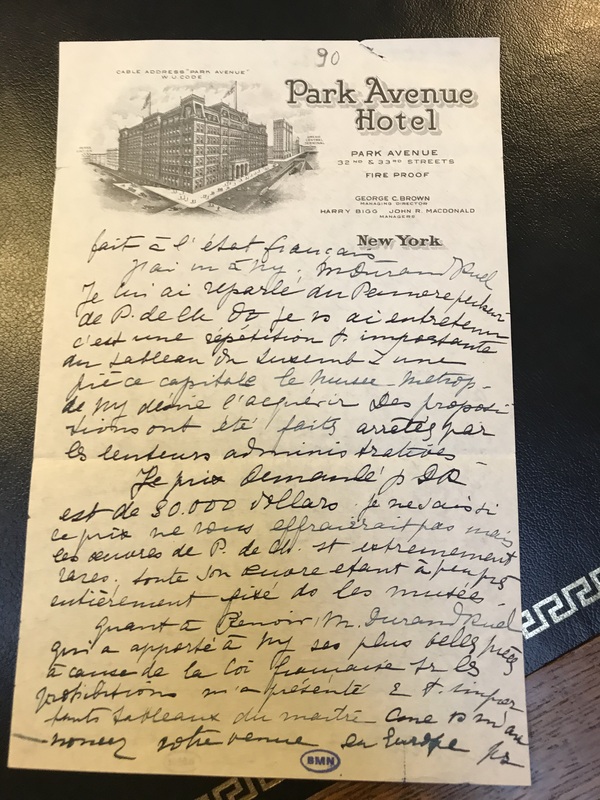 90
CABLE ADDRESS "PARK AVENUE"
W.U. CODE
Park Avenue
Hotel
PARK AVENUE
32ND & 33RD STREETS
FIRE PROOF
GEORGE C. BROWN
MANAGING DIRECTOR
HARRY BIGG JOHN R. MACDONALD
MANAGERS
New York
fait à l'état français
J'ai vu à Ny. M Durand Ruel
Je lui ai reparlé du Pauvre pecheur
de P. de Ch. dt je vs ai entretenu
c'est une répétition t. importante
du tableau du Luxemb une
pièce capitale le Musee Metrop.
de Ny désire l'acquérir Des proposi
tions ont été faites arretés par
les lenteurs administratives
Le prix demandé p DR
est de 30.000 dollars. je ne sais si
ce prix ne vous effraierait pas mais
les œuvres de P. de Ch. st extremement
rares. toute son œuvre etant à peu près
entièrement fixe ds les musées.
Quant à Renoir, M. Durand Ruel
qui a apporté à Ny ses plus belles pièces
à cause de la Loi française sr les
prohibitions m'a présenté 2 t. impor
tants tableaux du maître Come vs m'an
noncez votre venue en Europe
BMN